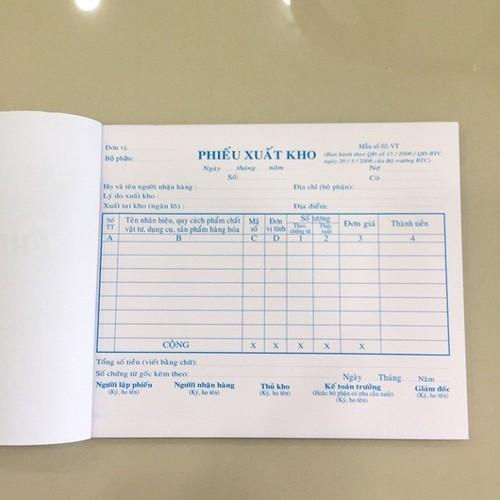 Đơn vị:
Mẫu số 02-VT
Bộ phận:
PHIẾU XUẤT KHO
(Ban hành theo QĐ số 15 / 2006 / QĐ-BTC
ngày 20 / 3 / 2006 của Bộ trưởng BTC)
Ngày tháng năm
Nợ
Số:
Có
Họ và tên người nhận hàng :
Địa chỉ (bộ phận):
Lý do xuất kho :
Xuất tại kho (ngăn lô) :
Địa điểm:
Số TT
Tên nhãn hiệu, quy cách phẩm chất vật tư, dụng cụ, sản phẩm hàng hóa
Mã số
Đơn vị tính
Số lượng
Theo chứng từ
Thực xuất
Đơn giá
Thành tiền
A B C D 1 2 3 4
CỘNG X X X X X
Tổng số tiền (viết bằng chữ):
Số chứng từ gốc kèm theo:
Ngày Tháng Năm
Người lập phiếu Người nhận hàng Thủ kho Kế toán trưởng Giám đốc
(Ký, họ tên) (Ký, họ tên) (Ký, họ tên) (Hoặc bộ phận có nhu cầu xuất) (Ký, họ tên)
(Ký, họ tên)